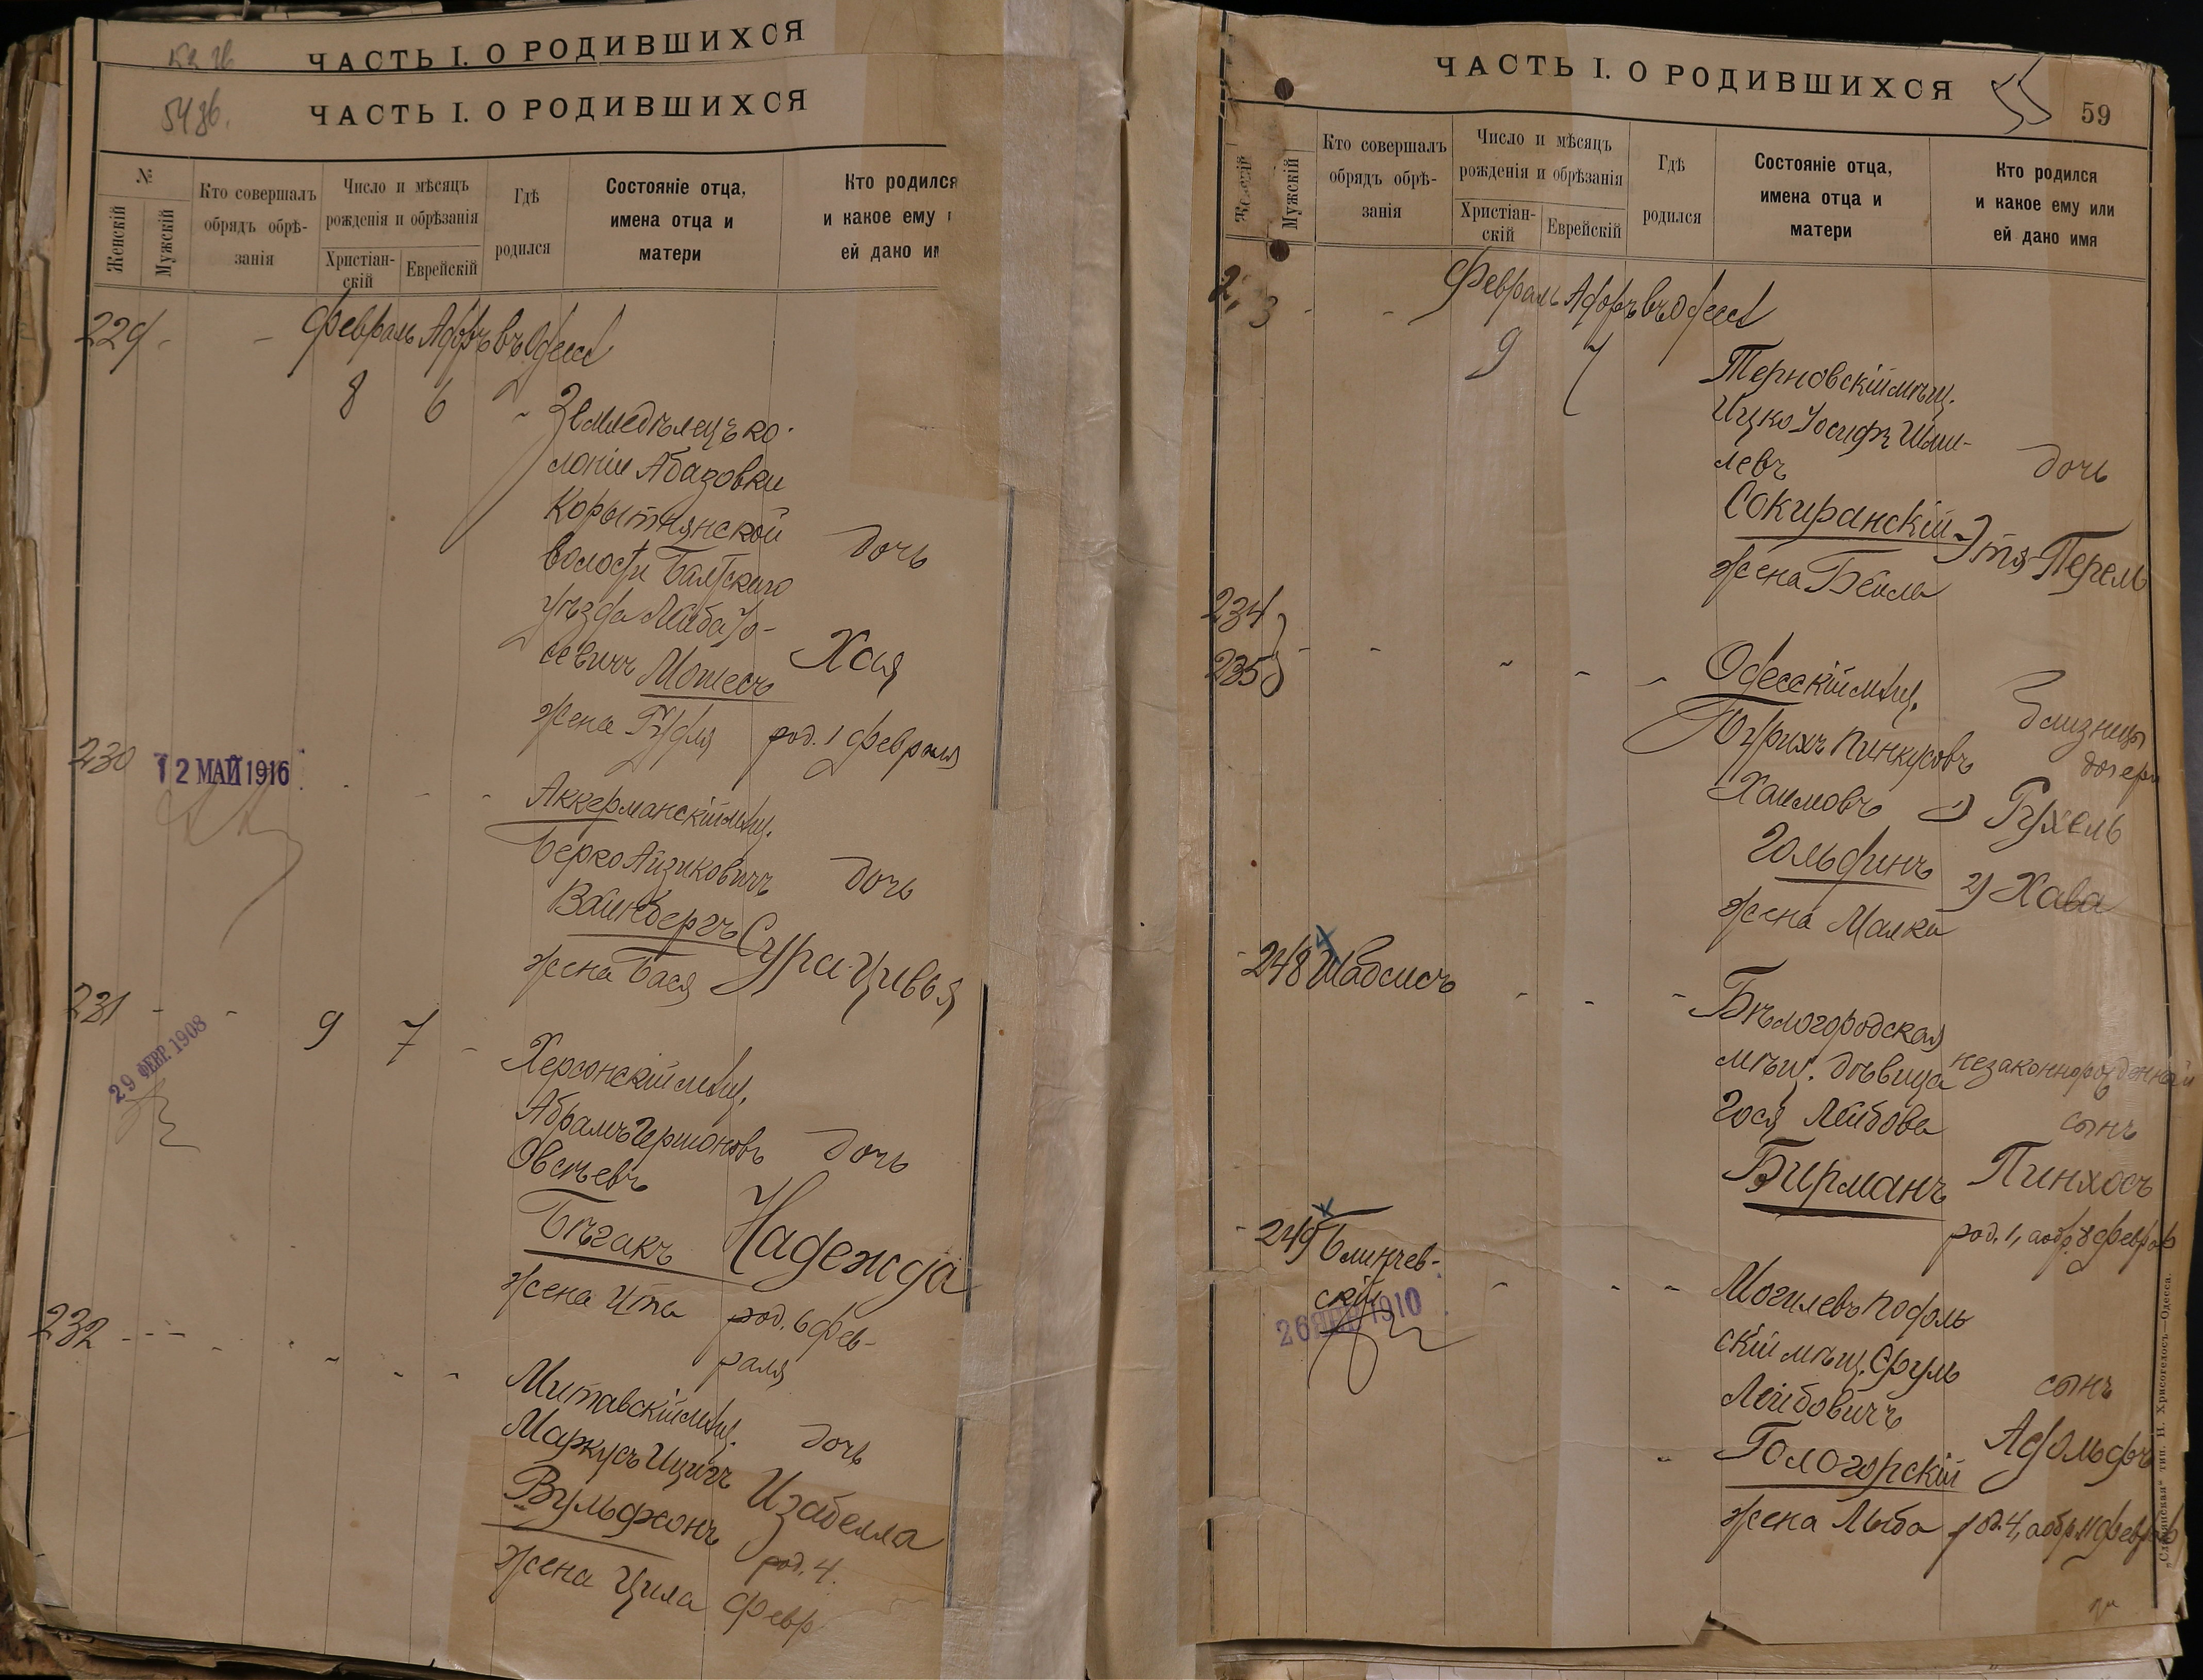 ЧАСТЬ I. О РОДИВШИХСЯ
ЧАСТЬ I. О РОДИВШИХСЯ
№
Женскій
Мужскій
Кто совершалъ
обрядъ обрѣ-
занія
Число и мѣсяцъ
рожденія и обрѣзанія
Христіан-
скій
Еврейскій
Гдѣ
родился
Состояніе отца,
имена отца и
матери
Кто родился
и какое ему
ей дано
229 - - Февраль Адоръ въ Одессѣ
8 6
Земледѣлецъ ко-
лоніи Абазовки
Корытнянской
волости Балтскаго
уѣзда Лейба Іо-
севичъ Мошесъ
жена Рухля
дочь
Хая
род. 1 февраля
230
12 МАЙ 1916
Аккерманскій мѣщ.
Берко Айзиковичъ
Вайнбергъ
жена Бася
дочь
Сура-Цивья
231 - - 9 7 -
29 ФЕВР. 1908
Херсонскій мѣщ.
Абрамъ Гершоновъ
Овсѣевъ
Бѣгакъ
жена Ита
дочь
Надежда
род. 6 фев-
раля
232
Митавскій мѣщ.
Маркусъ Ицигъ
Вульфсонъ
жена Цила
дочь
Изабелла
род. 4
февр
ЧАСТЬ I. О РОДИВШИХСЯ
55
59
Мужскій
Кто совершалъ
обрядъ обрѣ-
занія
Число и мѣсяцъ
рожденія и обрѣзанія
Христіан-
скій
Еврейскій
Гдѣ
родился
Состояніе отца,
имена отца и
матери
Кто родился
и какое ему или
ей дано имя
Февраль Адоръ въ Одессѣ
9 7
Терновскій мѣщ.
Ицко Іосифъ Шми-
левъ
Сокиранскій
жена Бейла
дочь
Этя-Перель
234
235
Одесскій мѣщ.
Пинкусовъ
Хаимовъ
Гольфинъ
жена Малка
близнецы
дочери
1) Рухель
2) Хава
- 248 Шабсисъ
Бѣлогородская
мѣщ. дѣвица
Гося Лейбова
Бирманъ
незаконнорожденный
сынъ
Пинхосъ
род. 1, а обр. 8 февраля
- 249 Блинчев-
скій
26 ЯНВ 1910
Могилевъ Подоль
скій мѣщ. Сруль
Лейбовичъ
Гологорскій
жена Лыба
сынъ
Адольфъ
род. 4, а обр. 11 февраля
„Славянская“ тип. Н. Хрисогелосъ—Одесса.